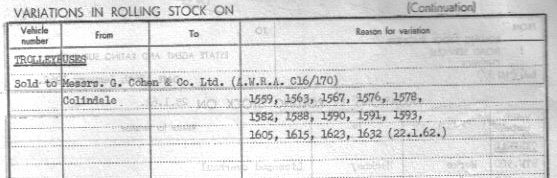 VARIATIONS IN ROLLING STOCK ON (Continuation)
Vehicle number From To Reason for variation
TROLLEYBUSES
Sold to Messrs. G. Cohen & Co. Ltd. (A.W.R.A. C16/170)
Colindale 1559, 1563, 1567, 1576, 1578,
1582, 1588, 1590, 1591, 1593,
1605, 1615, 1623, 1632 (22.1.62.)